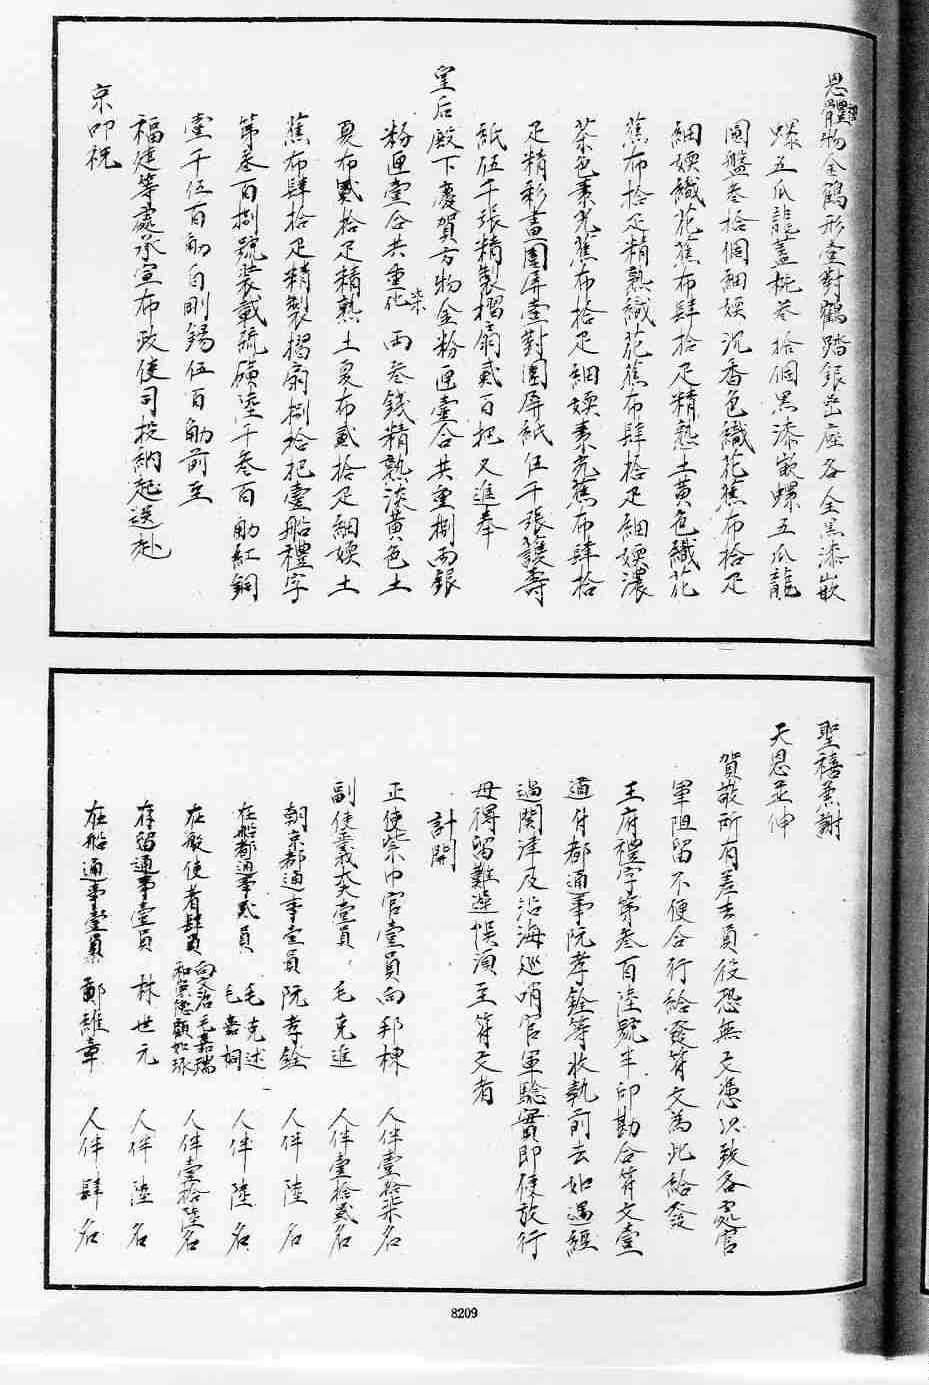 恩禮物金鶴形壹對鶴踏銀岩座各全黑漆嵌
螺五爪龍蓋椀叁拾個黑漆嵌螺五爪龍
圓盤叁拾個細嫩沉香色織花蕉布拾疋
細嫩織花蕉布肆拾疋精熟土黃色織花
蕉布拾疋精熟織花蕉布肆拾疋細嫩濃
茶色素光蕉布拾疋細嫩素光蕉布肆拾
疋精彩畫圍屏壹對圍屏紙伍千張護壽
紙伍千張精製摺扇貳百把又進奉
皇后殿下慶賀方物金粉匣壹合共重捌兩銀
粉匣壹合共重柒兩叁錢精熟淡黃色土
夏布貳拾疋精熟土夏布貳拾疋細嫩土
蕉布肆拾疋精製摺扇捌拾把壹船禮字
第叁百捌號裝載硫磺陸千叁百觔紅銅
壹千伍百觔白剛錫伍百觔前至
福建等處承宣布政使司投納起送赴
京叩祝
聖禧兼謝
天恩並伸
賀敬所有差去員役恐無文憑以致各處官
軍阻留不便合行給發符文為此給發
王府禮字第叁百陸號半印勘合符文壹
道付都通事阮孝銓等收執前去如遇經
過關津及沿海巡哨官軍驗實即便放行
毋得留難遲悞須至符文者
計開
正使紫巾官壹員向邦棟 人伴壹拾柒名
副使正義大夫壹員 毛克進 人伴壹拾貳名
朝京都通事壹員 阮孝銓 人伴陸名
在船都通事貳員 毛克述 毛嘉詞 人伴陸名
在船使者肆員 向文治 毛嘉瑞 和克隱 顧如琢 人伴壹拾陸名
存留通事壹員 林世元 人伴陸名
在船通事壹員 鄭維章 人伴肆名
8209